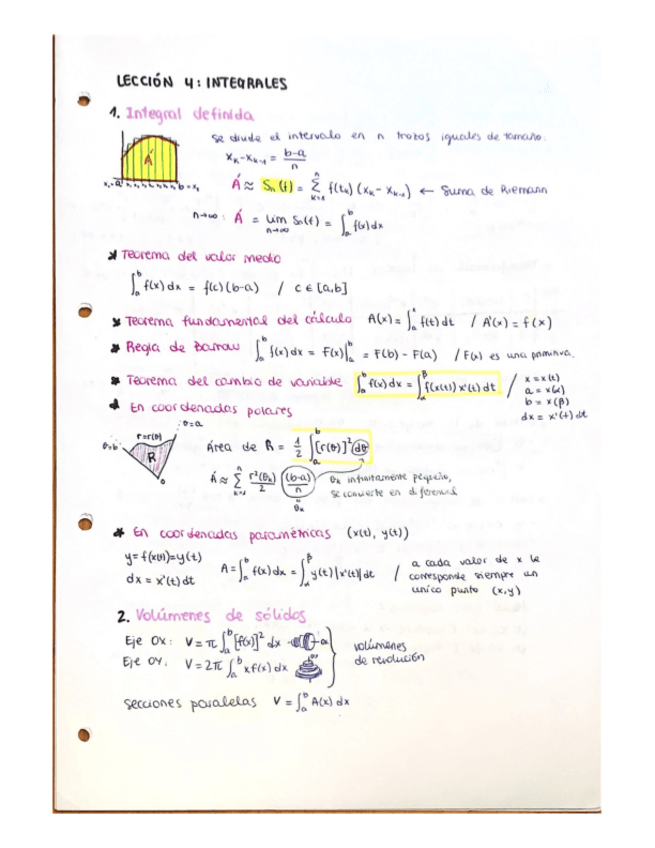 LECCIÓN 4: INTEGRALES
1. Integral definida
Se divide el intervalo en n trozos iguales de tamaño.
xₖ-xₖ₋₁ = b-a/n
Á
x₀=a x₁ x₂ b=xₙ
Á ≈ Sₙ(f) = Σₖ₌₁ⁿ f(tₖ)(xₖ-xₖ₋₁) ← Suma de Riemann
n→∞: Á = lim n→∞ Sₙ(f) = ∫ₐᵇ f(x)dx
* Teorema del valor medio
∫ₐᵇ f(x)dx = f(c)(b-a) / c ∈ [a,b]
* Teorema fundamental del cálculo A(x) = ∫ₐˣ f(t)dt / A'(x) = f(x)
* Regla de Barrow ∫ₐᵇ f(x)dx = F(x)|ₐᵇ = F(b) - F(a) / F(x) es una primitiva.
* Teorema del cambio de variable ∫ₐᵇ f(x)dx = ∫_α^β f(x(t)) x'(t) dt / x = x(t)
a = x(α)
b = x(β)
dx = x'(t) dt
* En coordenadas polares
θ=a
θ=b r=r(θ)
R
0
Área de R = 1/2 ∫ₐᵇ [r(θ)]² dθ
Á ≈ Σₖ₌₁ⁿ r²(θₖ)/2 (b-a)/n θₖ infinitamente pequeño,
se convierte en diferencial
θₖ
* En coordenadas paramétricas (x(t), y(t))
y = f(x(t)) = y(t)
dx = x'(t) dt
A = ∫ₐᵇ f(x)dx = ∫_α^β y(t)|x'(t)|dt / a cada valor de x le
corresponde siempre un
único punto (x,y)
2. Volúmenes de sólidos
Eje OX: V = π ∫ₐᵇ [f(x)]² dx
Eje OY: V = 2π ∫ₐᵇ x f(x) dx
volúmenes
de revolución
secciones paralelas V = ∫ₐᵇ A(x) dx